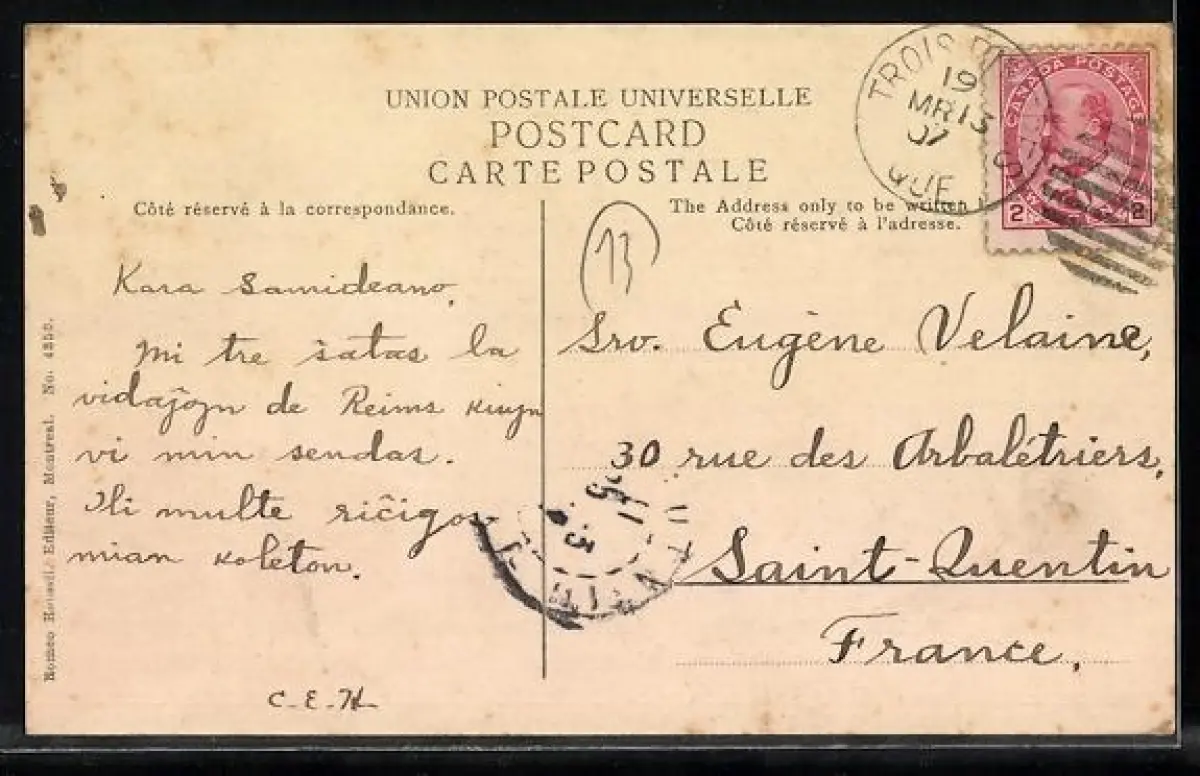 UNION POSTALE UNIVERSELLE
POSTCARD
CARTE POSTALE
Côté réservé à la correspondance.
The Address only to be written
Côté réservé à l'adresse.
TROIS
19
MR 13
07
QUE
CANADA POSTAGE
2 2
13
Kara Samideano,
Mi tre ŝatas la
vidaĵojn de Reims kiujn
vi min sendas.
Ili multe riĉigos
mian koleton.
C-E-H
Sro. Eugène Velaine,
30 rue des Arbalétriers,
Saint-Quentin
France.
Editeur, Montreal. No. 4350.